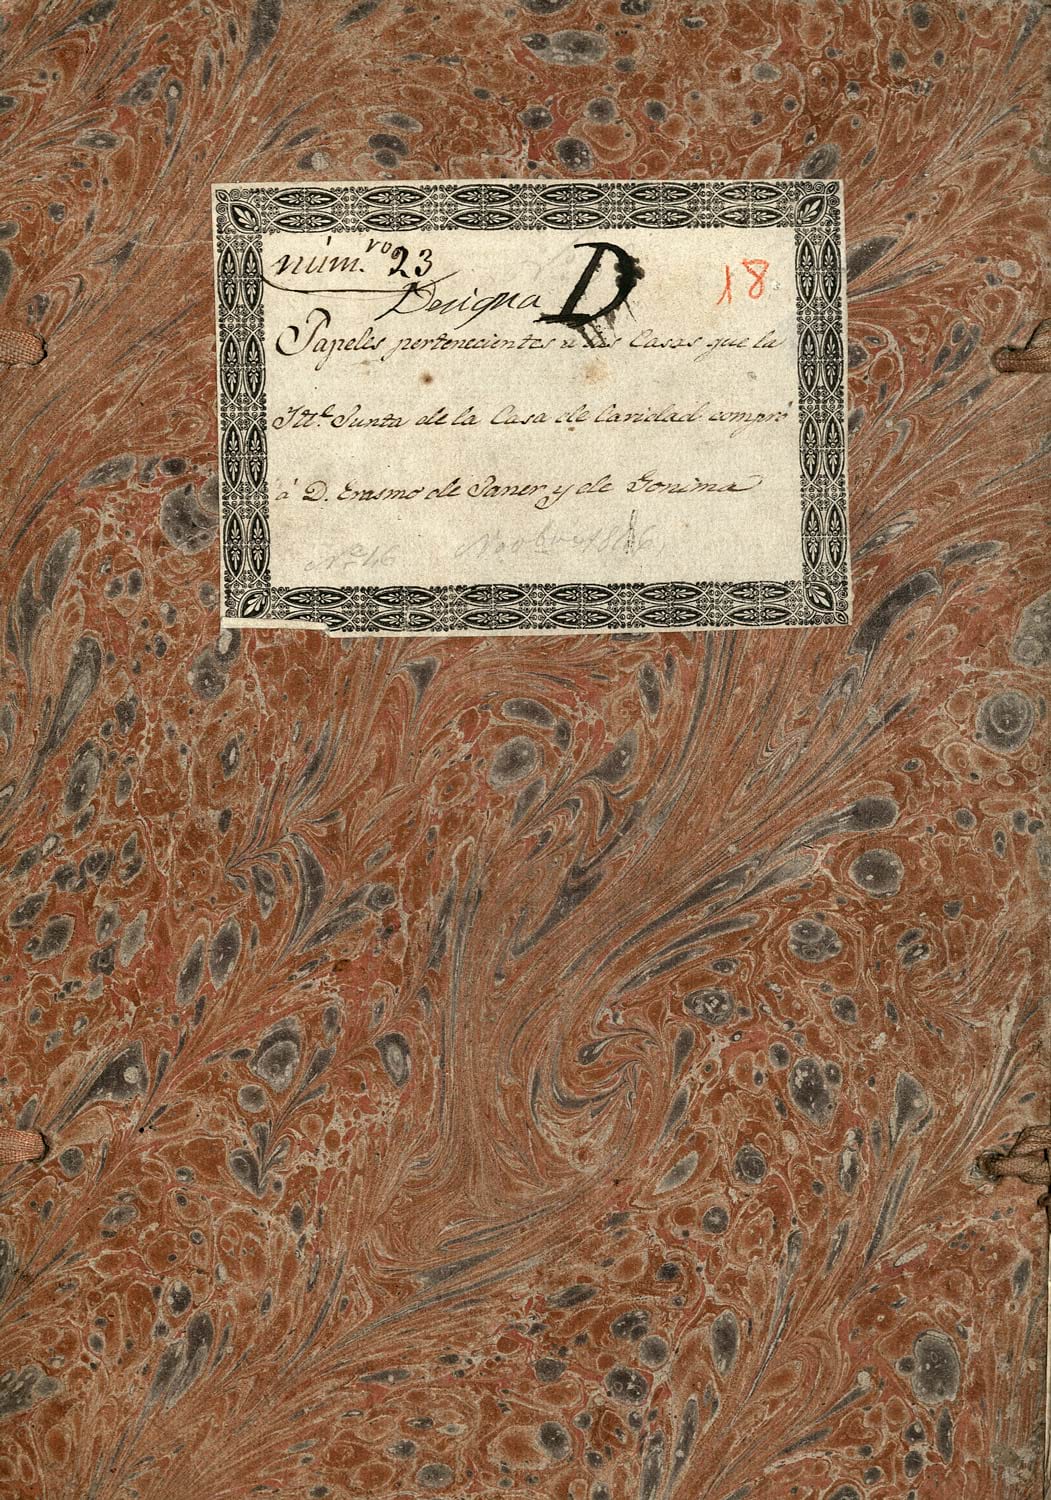 núm.ro 23
18
Designa D
Papeles pertenecientes a las Casas que la
Iltre. Junta de la Casa de Caridad compró
á D. Erasmo de Janer y de Gonima
No 46